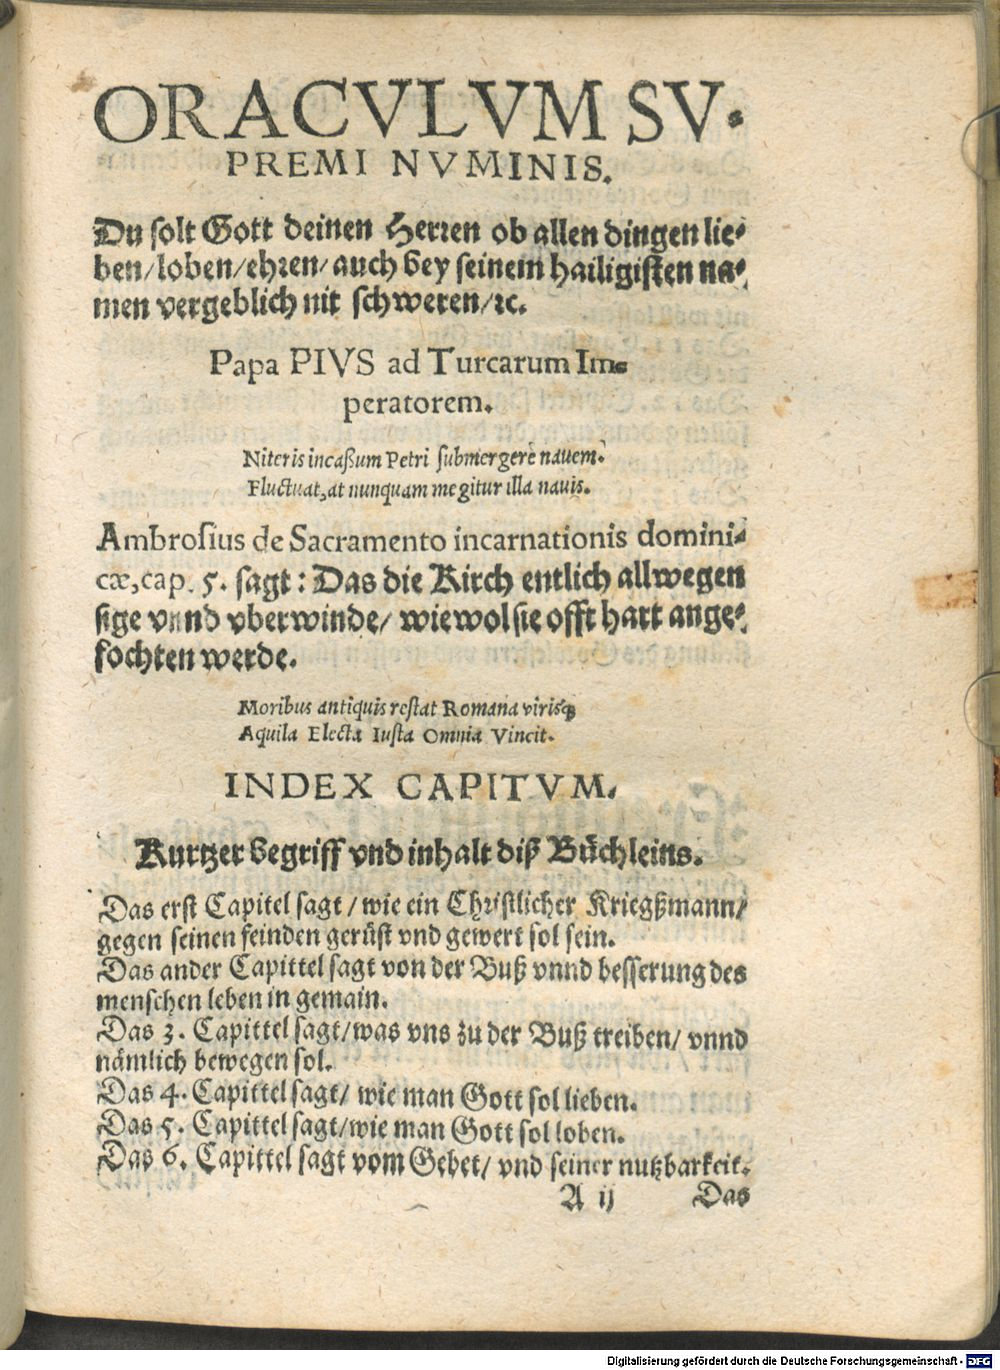 ORACVLVM SV-
PREMI NVMINIS.
Du solt Gott deinen Herren ob allen dingen lie-
ben/loben/ehren/auch bey seinem hailigisten na-
men vergeblich nit schweren/ꝛc.
Papa PIVS ad Turcarum Im-
peratorem.
Niteris incaßum Petri submergere nauem.
Fluctuat, at nunquam megitur illa nauis.
Ambrosius de Sacramento incarnationis domini-
cæ, cap. 5. sagt: Das die Kirch entlich allwegen
sige vnnd vberwinde/ wiewol sie offt hart ange-
fochten werde.
Moribus antiquis restat Romana virisq;
Aquila Electa Iusta Omnia Vincit.
INDEX CAPITVM.
Kurtzer begriff vnd inhalt diß Büchleins.
Das erst Capitel sagt / wie ein Christlicher Kriegßmann/
gegen seinen feinden gerüst vnd gewert sol sein.
Das ander Capittel sagt von der Buß vnnd besserung des
menschen leben in gemain.
Das 3. Capittel sagt/was vns zu der Buß treiben/ vnnd
nämlich bewegen sol.
Das 4. Capittel sagt/ wie man Gott sol lieben.
Das 5. Capittel sagt/wie man Gott sol loben.
Das 6. Capittel sagt vom Gebet/ vnd seiner nutzbarkeit.
A ij Das
Digitalisierung gefördert durch die Deutsche Forschungsgemeinschaft - DFG